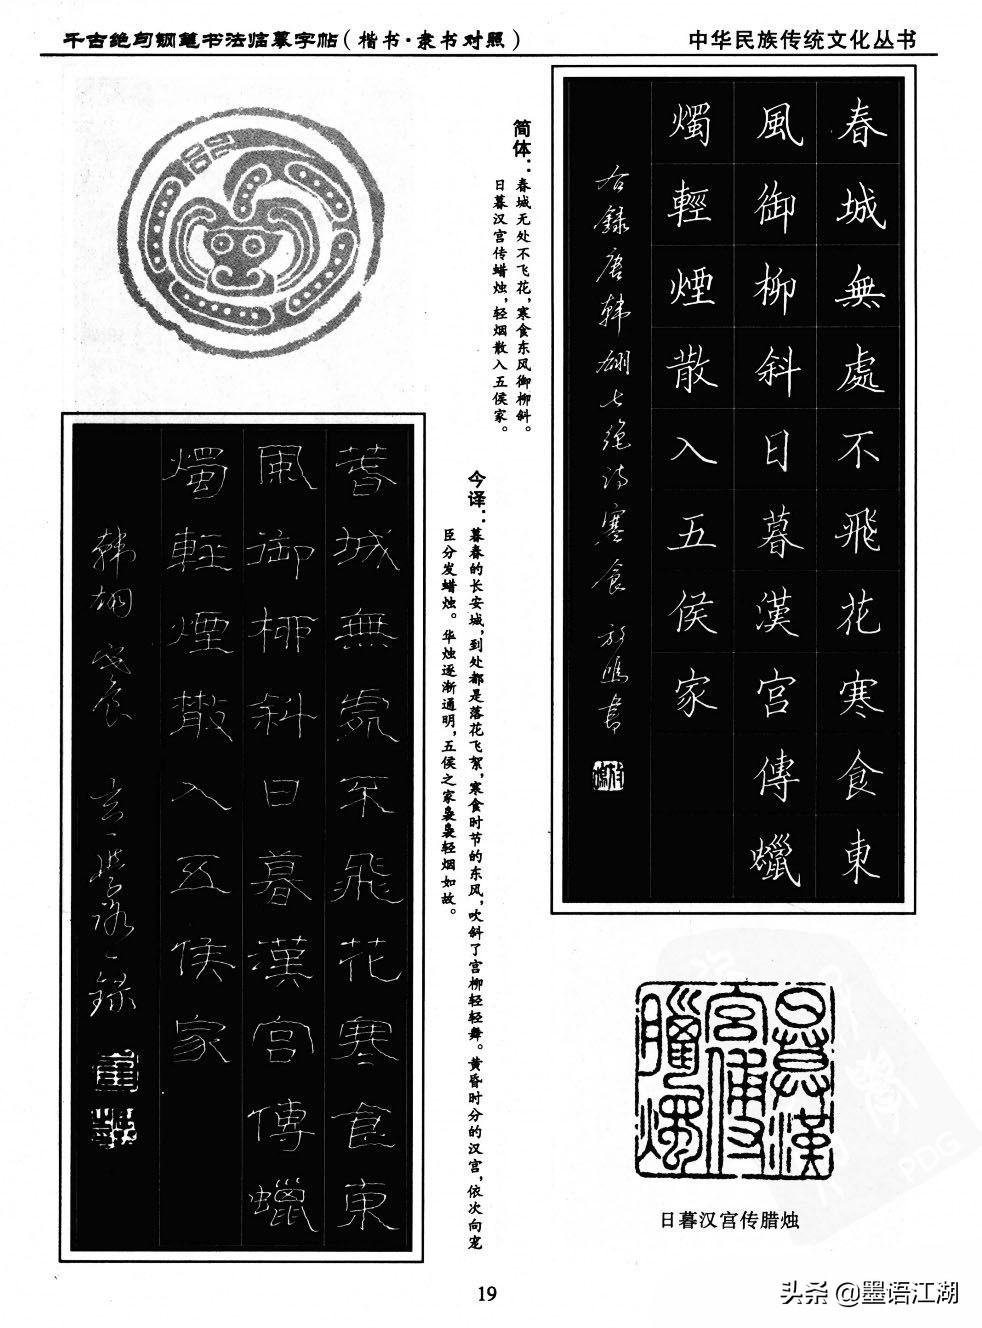 千古绝句钢笔书法临摹字帖（楷书·隶书对照）
中华民族传统文化丛书
春城無處不飛花寒食東
風御柳斜日暮漢宮傳蠟
燭輕煙散入五侯家
右錄唐韩翃七绝诗寒食
简体：春城无处不飞花，寒食东风御柳斜。
日暮汉宫传蜡烛，轻烟散入五侯家。
今译：暮春的长安城，到处都是落花飞絮，寒食时节的东风，吹斜了宫柳轻轻舞。黄昏时分的汉宫，依次向宠
臣分发蜡烛。华烛逐渐通明，五侯之家袅袅轻烟如故。
春城無處不飛花寒食東
風御柳斜日暮漢宮傳蠟
燭輕煙散入五侯家
韩翃
日暮漢
宮傳
臘燭
日暮汉宫传腊烛
PDG
19
头条@墨语江湖